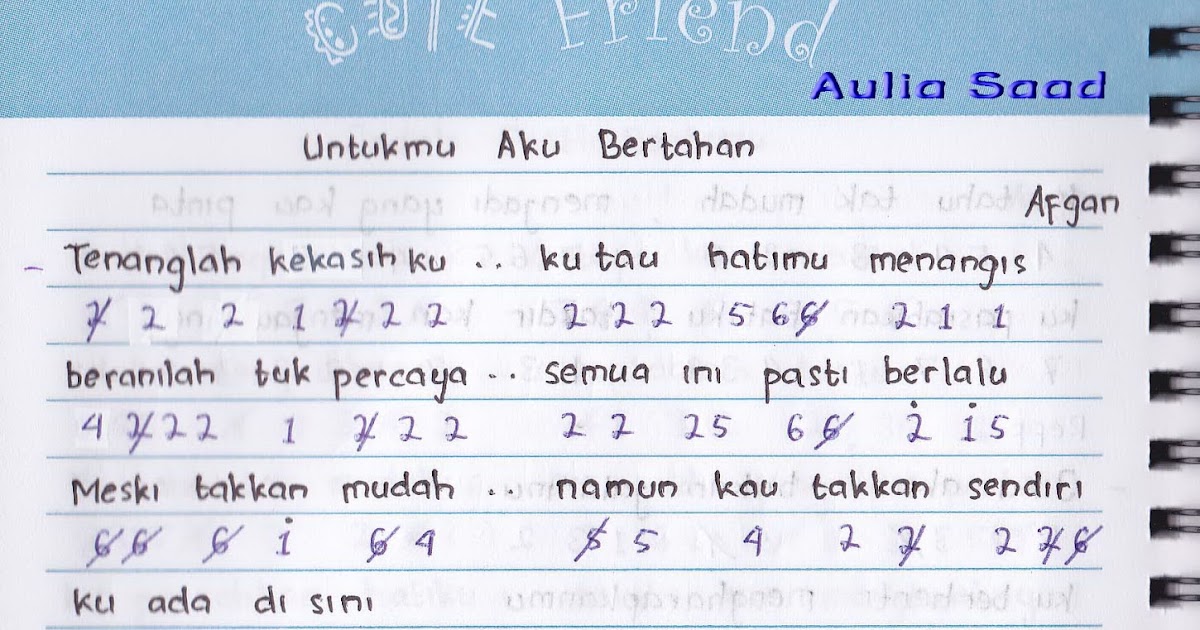 Cute Friend
Aulia Saad
Untukmu Aku Bertahan
Afgan
Tenanglah kekasihku .. ku tau hatimu menangis
2̸ 2 2 1 2̸ 2 2 2 2 2 5 6 6̸ 2 1 1
beranilah tuk percaya ... semua ini pasti berlalu
4 2̸ 2 2 1 2̸ 2 2 2 2 2 5 6 6̸ 2̇ 1̇ 5
Meski takkan mudah ... namun kau takkan sendiri
6̸ 6̸ 6̸ 1̇ 6̸ 4 5̸ 5 4 2 2̸ 2 2̸ 6̸
ku ada di sini